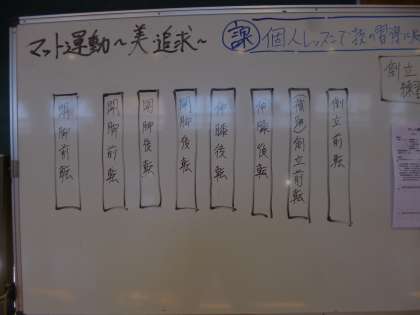 マット運動〜美 追求〜
課 個人レッスンで技の習得に
倒立
倒立前転
倒立前転
伸膝後転
伸膝後転
開脚後転
開脚後転
開脚前転
開脚前転